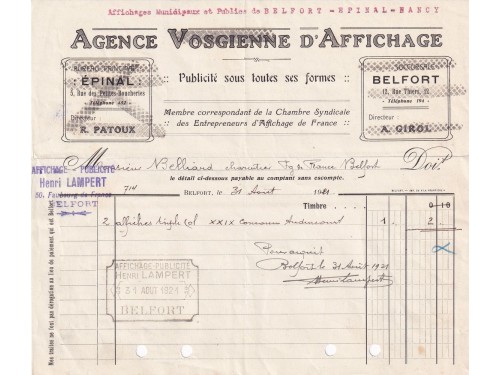 Affichages Municipaux et Publics de BELFORT -EPINAL-NANCY
AGENCE VOSGIENNE D'AFFICHAGE
BUREAU PRINCIPAL
ÉPINAL
5, Rue des Petites-Boucheries
Téléphone 452
Directeur :
R. PATOUX
:: Publicité sous toutes ses formes ::
Membre correspondant de la Chambre Syndicale
:: des Entrepreneurs d'Affichage de France ::
SUCCURSALE
BELFORT
12, Rue Thiers, 12
Téléphone 194
Directeur :
A. GIROL
Monsieur Belliard charcutier Fg de France Belfort Doit
le détail ci-dessous payable au comptant sans escompte.
AFFICHAGE PUBLICITÉ
Henri LAMPERT
50, Faubourg de France
BELFORT
714 BELFORT, le 31 Août 1921
Timbre
0 10
2 affiches triple Col XXIX Concours 1 2
Pour acquit
Belfort le 31 Août 1921
Henri Lampert
AFFICHAGE-PUBLICITÉ
HENRI LAMPERT
31 AOUT 1921
BELFORT
Nos traites ne font pas dérogation au lieu de paiement qui est Belfort